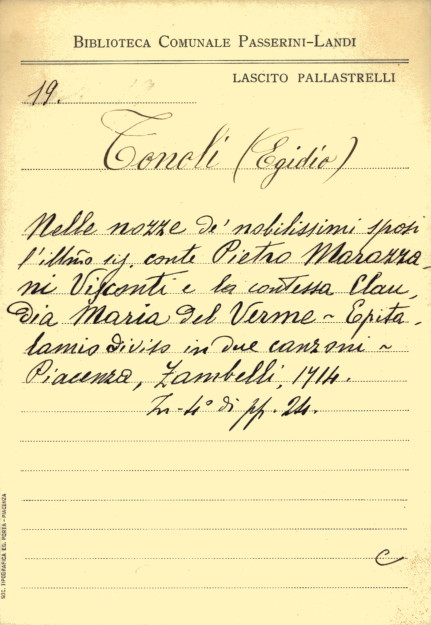 BIBLIOTECA COMUNALE PASSERINI-LANDI
LASCITO PALLASTRELLI
19.
Tonoli (Egidio)
Nelle nozze de' nobilissimi sposi
l'illm̃o sig. conte Pietro Marazza,
ni Visconti e la contessa Clau,
dia Maria Del Verme - Epita,
lamio diviso in due canzoni -
Piacenza, Zambelli, 1714.
In-4° di pp. 24.
C
SOC. TIPOGRAFICA ED. PORTA - PIACENZA